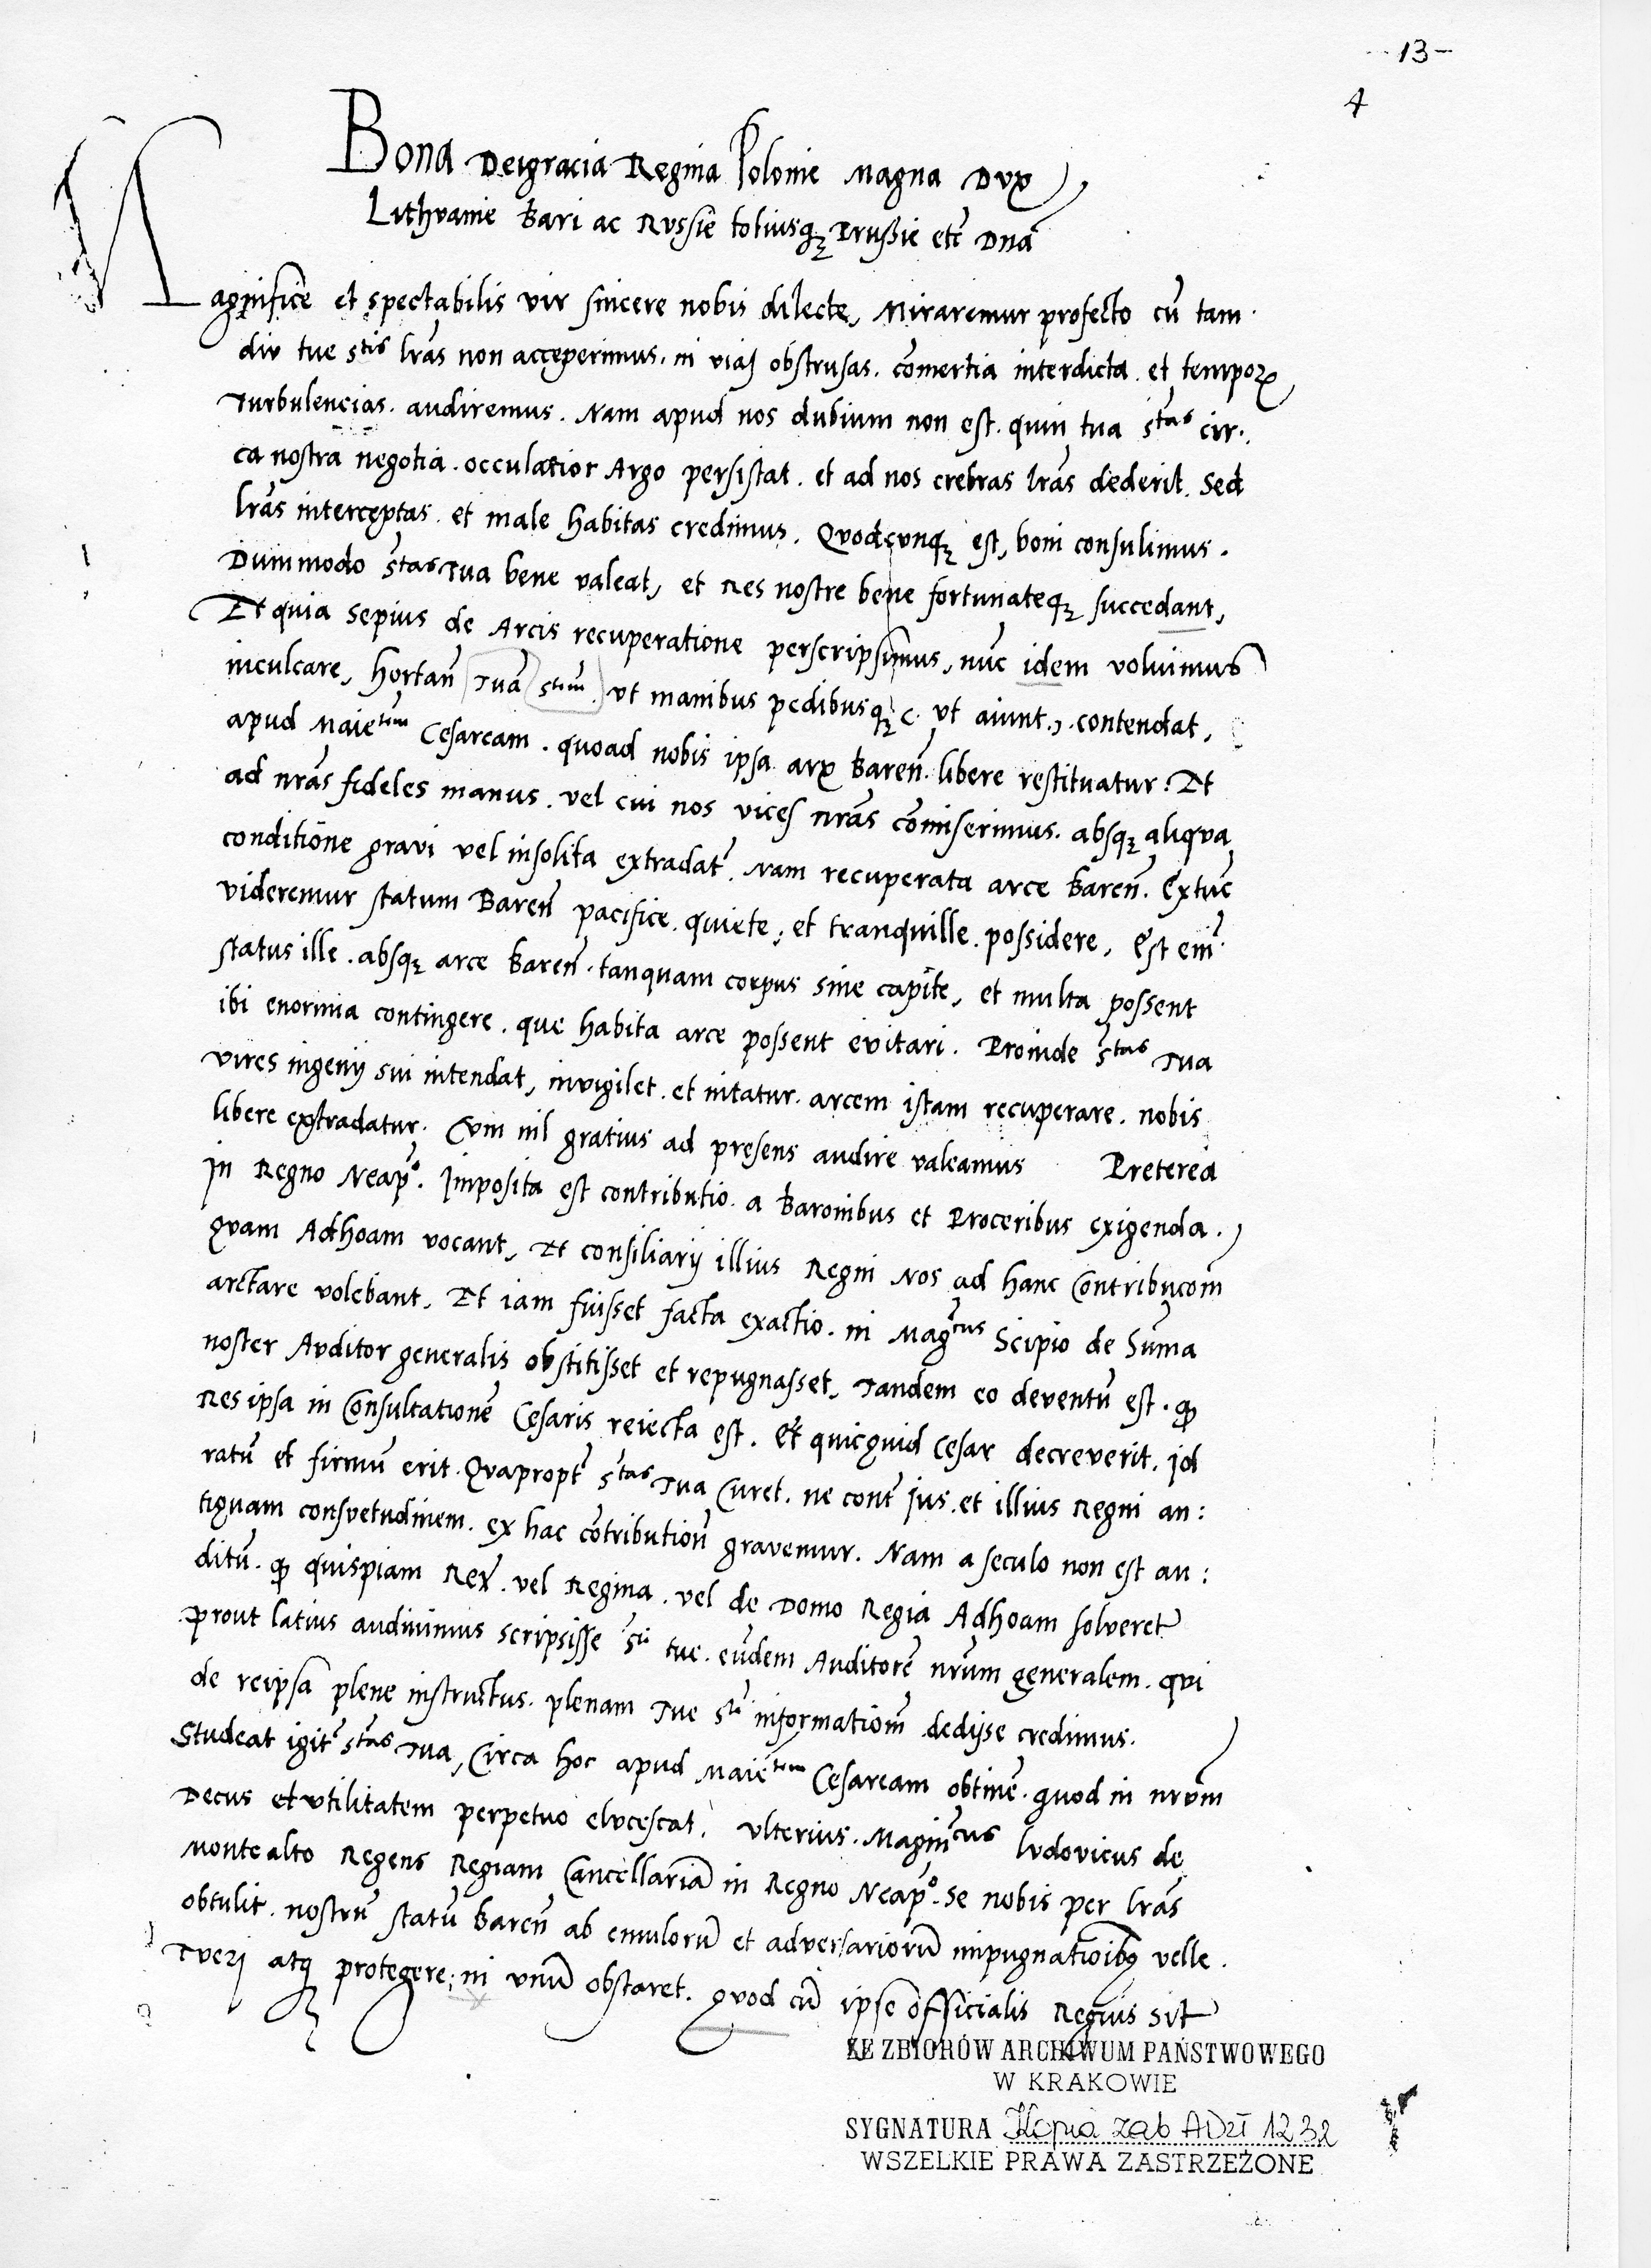 -13-
4
Bona Dei gracia Regina Polonie Magna Dux
Lithvanie Bari ac Rvssie totiusqz Prussie etc̃ Dnã
Magnifice et spectabilis vir sincere nobis dilecte, Miraremur profecto cũ tam
div tue Stis lrãs non acceperimus. ni vias obstrusas. cõmertia interdicta. et tempoꝝ
Turbulencias. audiremus. Nam apud nos dubium non est. quin tua Stas cir.
ca nostra negotia. occulatior Argo persistat. et ad nos crebras lrãs dederit. Sed
lrãs interceptas. et male habitas credimus. Quodcunqz est, boni consulimus.
Dummodo Stas Tua bene valeat, et Res nostre bene fortunateqz succedant,
Et quia sepius de Arcis recuperatione perscripsimus, nũc idem voluimus
inculcare, hortañ Tuã Stem. vt manibus pedibusqz (. vt aiunt.). contendat,
apud Maietem Cesaream. quoad nobis ipsa arx Bareñ. libere restituatur. Et
ad nrãs fideles manus. vel cui nos vices nrãs cõmiserimus. absqz aliqva
conditiõne gravi vel insolita extradat̃. Nam recuperata arce Bareñ. Extũc
videremur statum Bareñ pacifice. quiete, et tranquille. possidere, Est em̃
status ille. absqz arce Bareñ. tanquam corpus sine capite, et multa possent
ibi enormia contingere. que habita arce possent evitari. Proinde Stas Tua
vires ingenij sui intendat, invigilet. et nitatur. arcem istam recuperare. nobis
libere extradatur. Cvm nil gratius ad presens audire valeamus Preterea
In Regno Neapº. Imposita est contributio. a Baronibus et Proceribus exigenda.
qvam Adhoam vocant, Et consiliarij illius Regni Nos ad hanc Contribucom̃
arctare volebant, Et iam fuisset facta exactio. ni Magcus Scipio de Sum̃a
noster Avditor generalis obstitisset et repugnasset, Tandem eo deventũ est. ꝙ
Res ipsa in Consultationẽ Cesaris reiecta est. Et quicquid Cesar decreverit. id
ratũ et firmũ erit. Qvapropt̃ Stas Tua Curet. ne cont̃ Jus. et illius Regni an:
tiquam consvetudinem. ex hac cõntributioñ gravemur. Nam a seculo non est au:
ditũ. ꝙ quispiam Rex. vel Regina. vel de Domo Regia Adhoam solveret
prout latius audivimus scripsisse Sti tue. eũdem Auditorẽ nrũm generalem. qvi
de reipsa plene instructus. plenam Tue Sti informatiom̃ dedisse credimus.
Studeat igit̃ Stas Tua, Circa hoc apud Maietem Cesaream obtinẽ. quod in nrvm
Decus et vtilitatem perpetuo elvcescat. Vlterius. Magnicus Lvdovicus de
Montealto Regens Regiam Cancellariã in Regno Neapº. se nobis per lrãs
obtulit. nostrũ statũ Bareñ ab emulorũ et adversariorũ impugnatioibꝫ velle.
Tveri atqz protegere, ni vnũ obstaret. qvod cũ ipse officialis Regius sit
ZE ZBIORÓW ARCHIWUM PAŃSTWOWEGO
W KRAKOWIE
SYGNATURA Kopia zab ADzT 1232
WSZELKIE PRAWA ZASTRZEŻONE